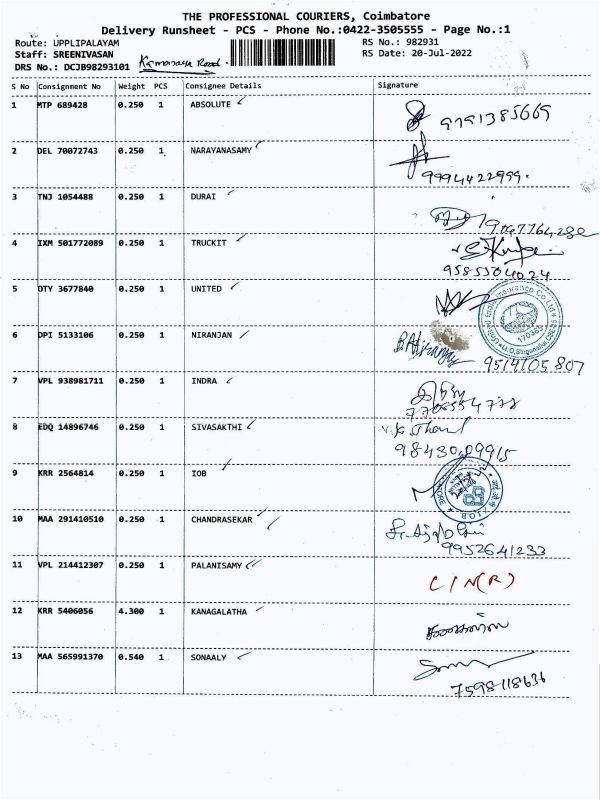 THE PROFESSIONAL COURIERS, Coimbatore
Delivery Runsheet - PCS - Phone No.:0422-3505555 - Page No.:1
Route: UPPLIPALAYAM RS No.: 982931
Staff: SREENIVASAN RS Date: 20-Jul-2022
DRS No.: DCJB98293101 Kamaraja Road.
S No Consignment No Weight PCS Consignee Details Signature
1 MTP 689428 0.250 1 ABSOLUTE 9791385669
2 DEL 70072743 0.250 1 NARAYANASAMY
9994422999.
3 TNJ 1054488 0.250 1 DURAI
4 IXM 501772089 0.250 1 TRUCKIT
9585504024
5 DTY 3677840 0.250 1 UNITED
6 DPI 5133106 0.250 1 NIRANJAN
9514105807
7 VPL 938981711 0.250 1 INDRA
8 EDQ 14896746 0.250 1 SIVASAKTHI
9843009915
9 KRR 2564814 0.250 1 IOB
10 MAA 291410510 0.250 1 CHANDRASEKAR
9952641233
11 VPL 214412307 0.250 1 PALANISAMY
C/N(R)
12 KRR 5406056 4.300 1 KANAGALATHA
13 MAA 565991370 0.540 1 SONAALY
7598118636